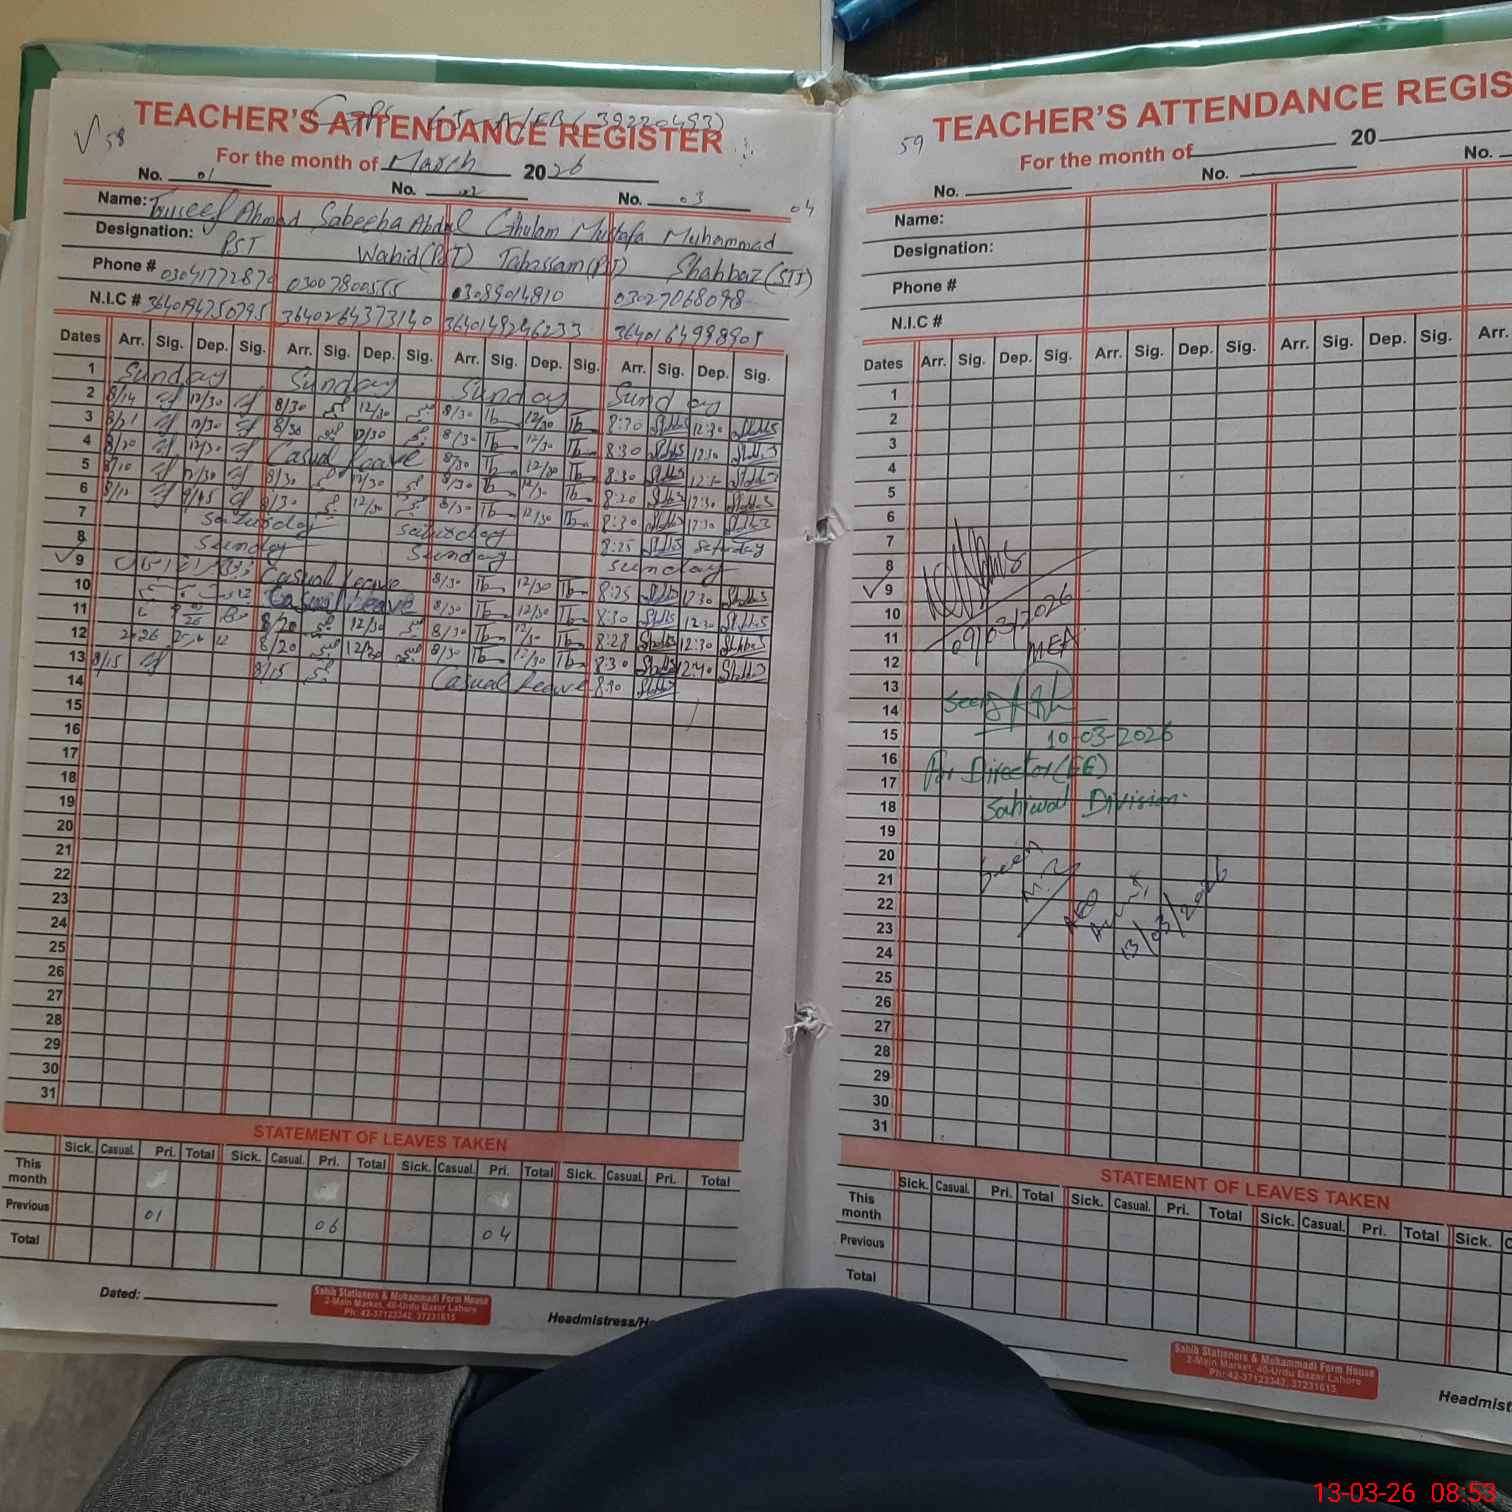 TEACHER'S ATTENDANCE REGISTER
58
For the month of March 2026
No. 01 No. 02 No. 03 04
Name: Touseef Ahmad Sabeeha Abdul Ghulam Mustafa Muhammad
Designation: PST Wahid(PST) Tabassam(PST) Shahbaz(STI)
Phone # 03007800555 03089014810 03027068098
N.I.C # 3640264373140 3640148246233
Dates Arr. Sig. Dep. Sig. Arr. Sig. Dep. Sig. Arr. Sig. Dep. Sig. Arr. Sig. Dep. Sig.
1 Sunday Sunday Sunday Sunday
2 8/14 12/30 8/30 12/30 8/30 12/30 8:30 12:30
3 8/21 12/30 8/30 12/30 8/30 12/30 8:30 12:30
4 8/20 12/30 Casual Leave 8/30 12/30 8:30 12:30
5 8/10 12/30 8/30 12/30 8/30 12/30 8:20 12:30
6 8/12 8/30 12/30 8/30 12/30 8:30 12:30
7 Saturday Saturday 8:25 Saturday
8 Sunday Sunday Sunday
9 Casual Leave 8/30 12/30 8:25 12:30
10 Casual Leave 8/30 12/30 8:30 12:30
11 8/20 12/30 8/30 12/30 8:28 12:30
12 8/20 12/30 8/30 12/30 8:30
13 8/15 8/15 Casual Leave 8:30
14
15
16
17
18
19
20
21
22
23
24
25
26
27
28
29
30
31
STATEMENT OF LEAVES TAKEN
Sick. Casual. Pri. Total Sick. Casual. Pri. Total Sick. Casual. Pri. Total Sick. Casual. Pri. Total
This month
Previous 01 06 04
Total
Dated:
Sahib Stationers & Muhammadi Form House
2-Main Market, 40-Urdu Bazar Lahore
Ph: 42-37123342, 37231615
Headmistress/He
TEACHER'S ATTENDANCE REGIS
59
For the month of 20
No. No. No.
Name:
Designation:
Phone #
N.I.C #
Dates Arr. Sig. Dep. Sig. Arr. Sig. Dep. Sig. Arr. Sig. Dep. Sig. Arr.
1
2
3
4
5
6
7
8
9
10
11
12
13
14
15
16
17
18
19
20
21
22
23
24
25
26
27
28
29
30
31
09/03/2026
MEA
Seen
10-03-2026
For Director(EE)
Sahiwal Division.
Seen
AEO
13/03/2026
STATEMENT OF LEAVES TAKEN
Sick. Casual. Pri. Total Sick. Casual. Pri. Total Sick. Casual. Pri. Total Sick. C
This month
Previous
Total
Sahib Stationers & Muhammadi Form House
2-Main Market, 40-Urdu Bazar Lahore
Ph: 42-37123342, 37231615
Headmist
13-03-26 08:53